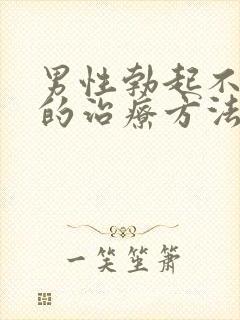 男性勃起不
的治療方法
一笑笙箫